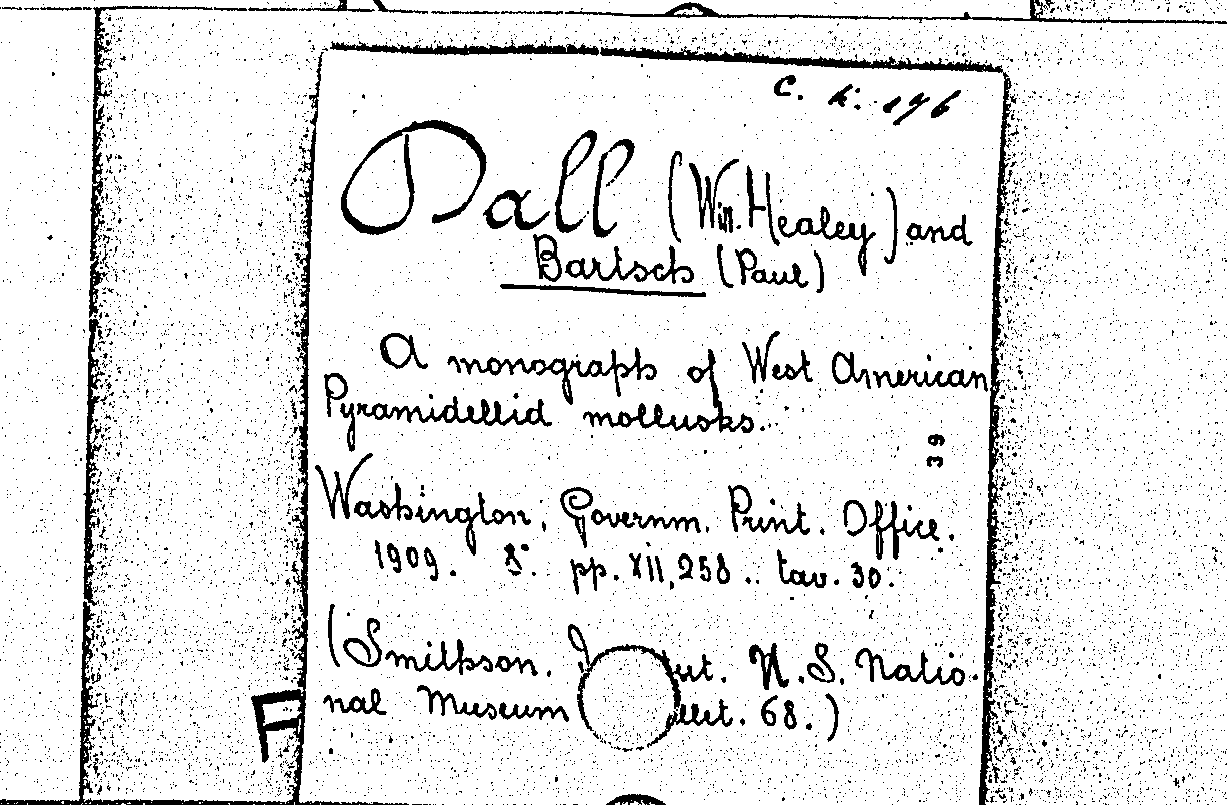 C. K. 176
Dall (Wm. Healey) and
Bartsch (Paul)
A monograph of West American
Pyramidellid mollusks.
39
Washington, Governm. Print. Office.
1909. 8° pp. XII, 258.. tav. 30.
(Smithson. ut. U.S. Natio-
nal Museum llet. 68.)
F